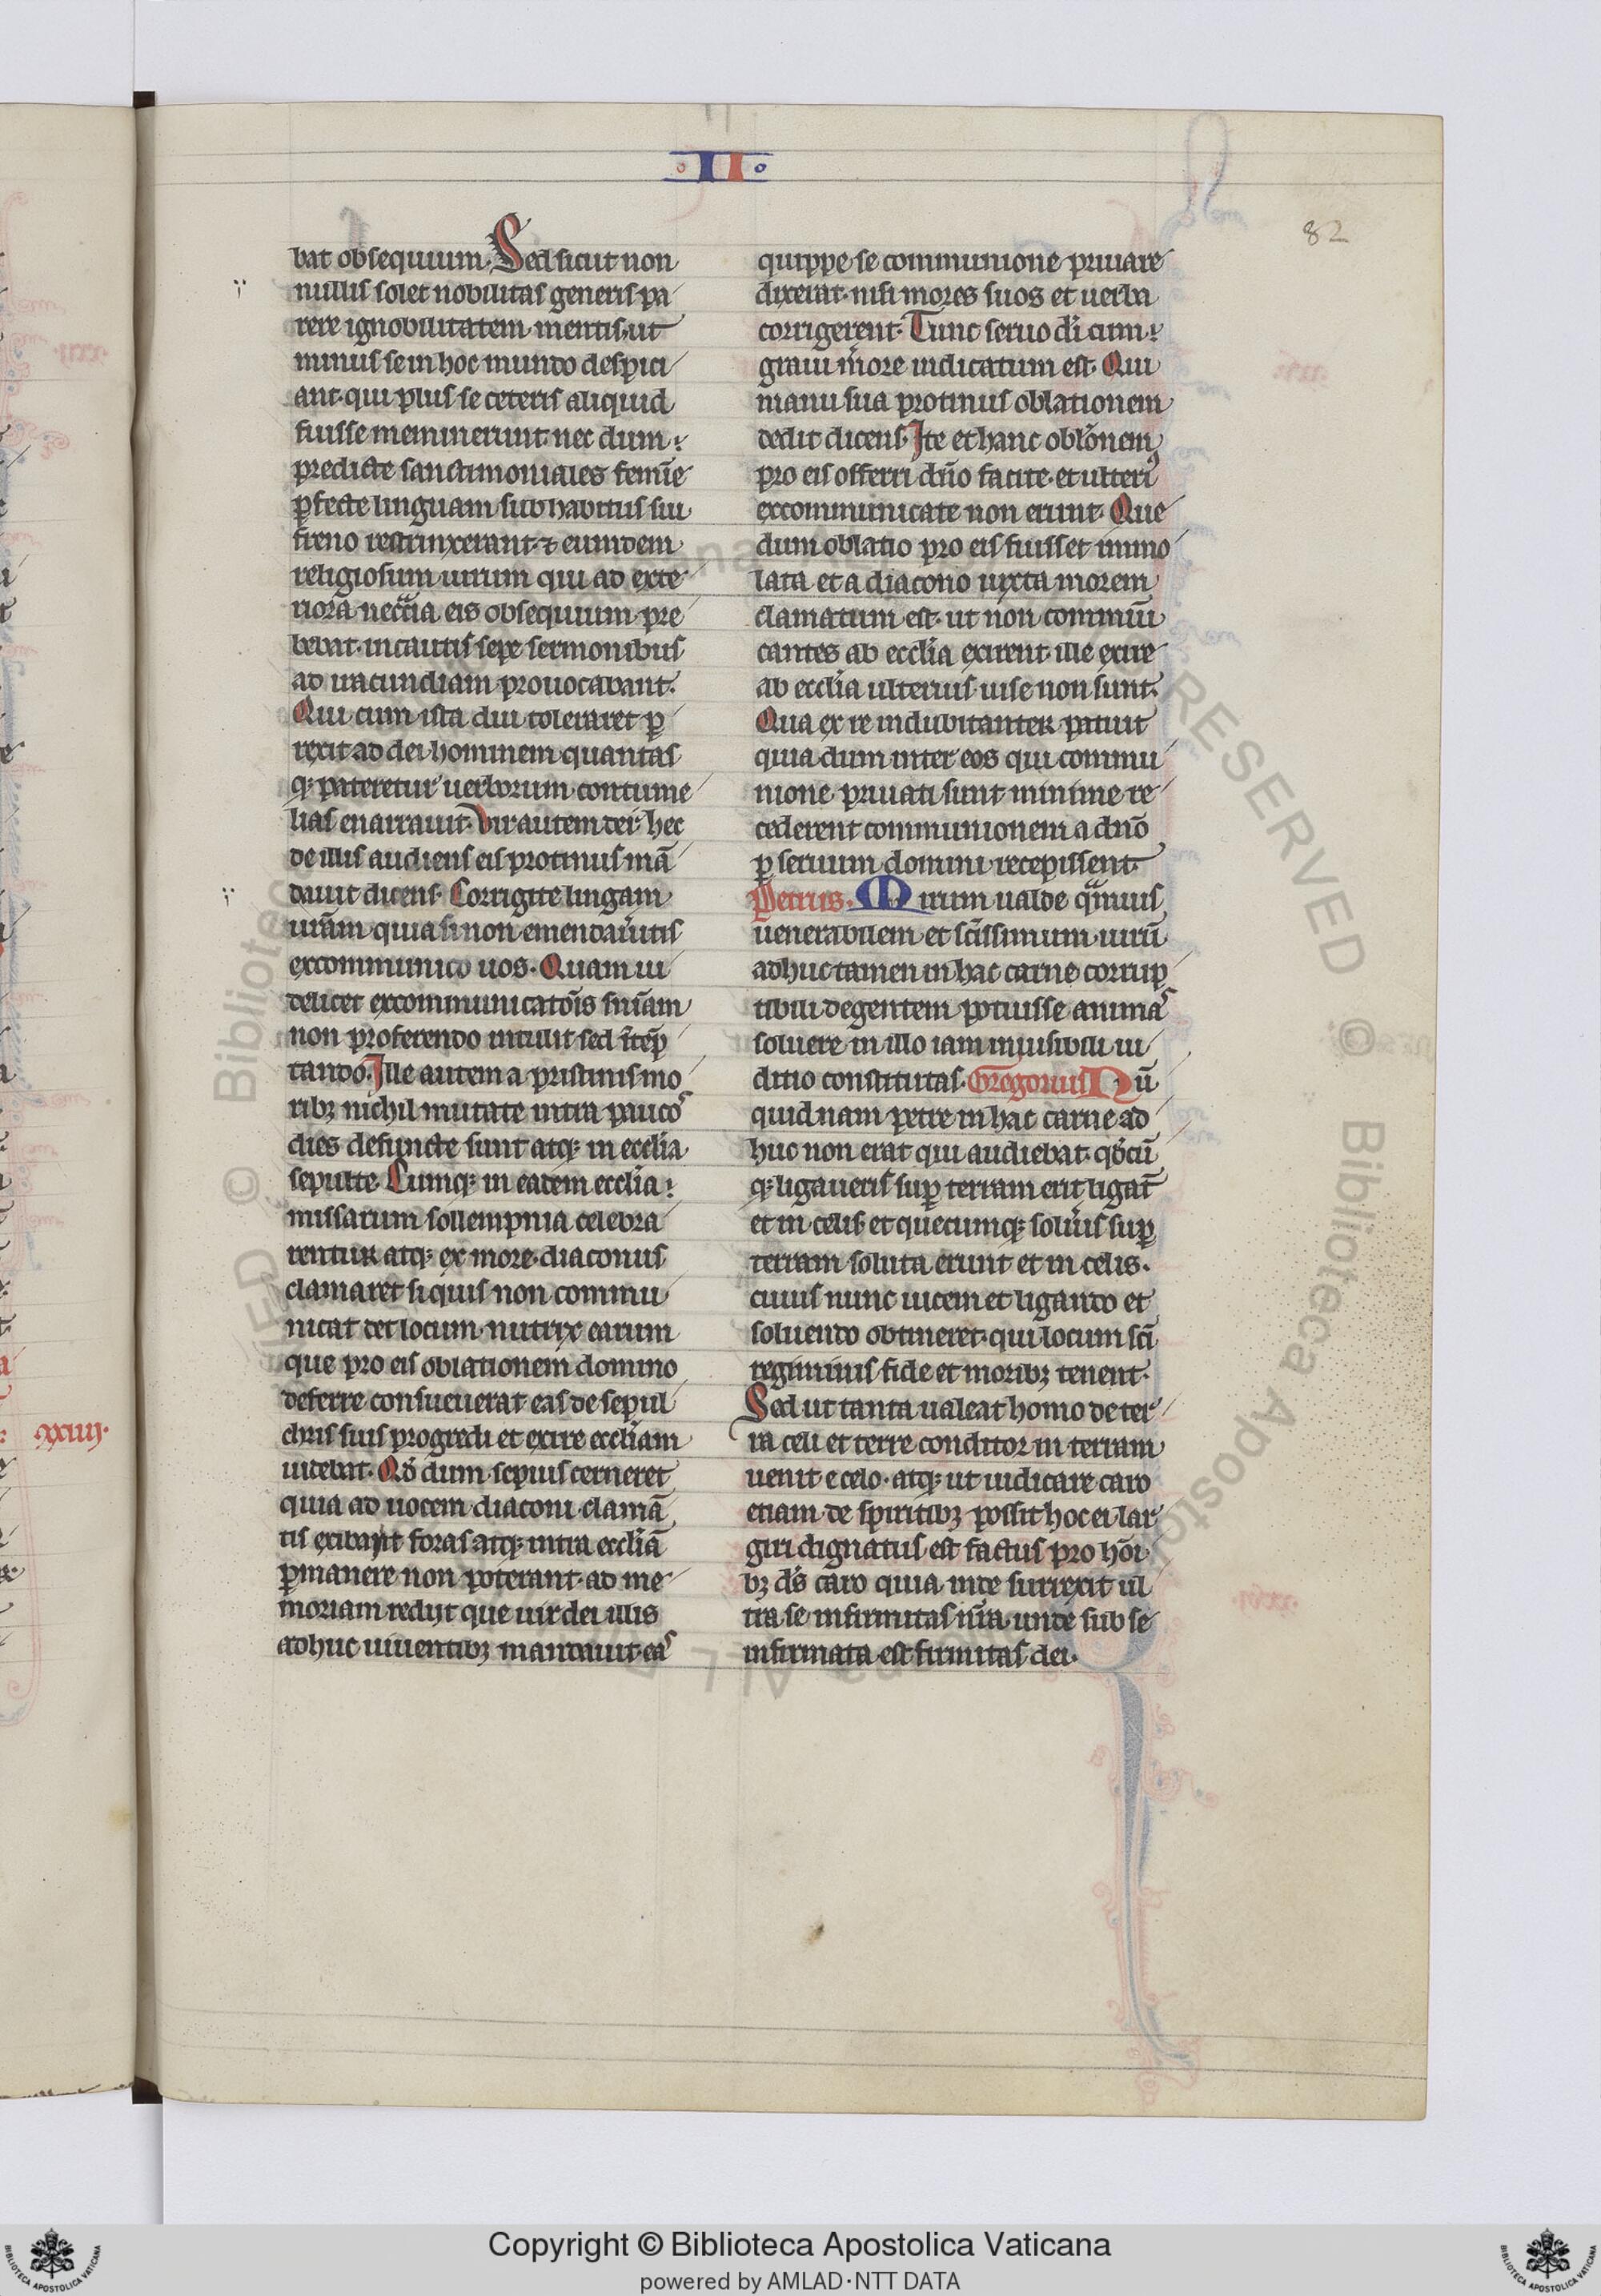 II
82
bat obsequium. Sed sicut non
nullis solet nobilitas generis pa
rere ignobilitatem mentis, ut
minus se in hoc mundo despici
ant. qui plus se ceteris aliquid
fuisse meminerunt nec dum
predicte sanctimoniales femīe
ꝑfecte linguam sub habitus sui
freno restrinxerant. ⁊ eumdem
religiosum uirum qui ad exte
riora neccͣia eis obsequium pre
bebat. incautis sepe sermonibus
ad iracundiam prouocabant.
Qui cum ista diu toleraret ꝑ
rexit ad dei hominem quantas
qꝫ pateretur uerborum contume
lias enarrauit. Vir autem dei hec
de illis audiens eis protinus mā
dauit dicens. Corrigite lingam
urām quia si non emendau̾itis
excommunico uos. Quam ui
delicet excommunicatōis sniam
non proferendo intulit sed
tando. Ille autem a pristinis mo
ribꝫ nichil mutate intra paucos
dies defuncte sunt atqꝫ in ecclīa
sepulte. Cumqꝫ in eadem ecclīa
missarum sollempnia celebra
rentur atqꝫ ex more diaconus
clamaret si quis non commu
nicat det locum. nutrix earum
que pro eis oblationem domino
deferre consueuerat eas de sepul
chris suis progredi et exire eccliam
uidebat. Qd̄ dum sepius cerneret
quia ad uocem diaconi clamā
tis exibant foras atqꝫ intra eccliā
ꝑmanere non poterant. ad me
moriam redijt que uir dei illis
adhuc uiuentibꝫ mandauit. eas
quippe se communione priuare
dixerat. nisi mores suos et uerba
corrigerent. Tunc seruo dī cum
graui m̄rore indicatum est. Qui
manu sua protinus oblationem
dedit dicens. Ite et hanc oblōnem
pro eis offerri dn̄o facite. et ulteriꝰ
excommunicate non erunt. Que
dum oblatio pro eis fuisset immo
lata et a diacono iuxta morem
clamatum est. ut non commūi
cantes ab ecclīa exirent. ille exire
ab ecclīa ulterius uise non sunt.
Qua ex re indubitanter patuit
quia dum inter eos qui commu
nione priuati sunt minime re
cederent communionem a dn̄o
ꝑ seruum domini recepissent.
Petrus. Mirum ualde qͣmuis
uenerabilem et scīssimum uirū
adhuc tamen in hac carne corrup
tibili degentem potuisse animas
soluere in illo iam inuisibili iu
ditio constitutas. Gregorius Nū
quid nam petre in hac carne ad
huc non erat qui audiebat. qd̄cū
qꝫ ligaueris suꝑ terram erit ligat̄
et in celis. et quecumqꝫ solu̾is suꝑ
terram soluta erunt et in celis.
cuius nunc uicem et ligando et
soluendo obtineret. qui locum scī
regiminis fide et moribꝫ tenent.
Sed ut tanta ualeat homo de ter
ra celi et terre conditor in terram
uenit e celo. atqꝫ ut iudicare caro
etiam de spiritibꝫ possit hoc ei lar
giri dignatus est factus pro hōi
bꝫ ds̄ caro quia inde surrexit ul
tra se infirmitas nrā. unde sub se
infirmata est firmitas dei.
xxiiij.
Copyright © Biblioteca Apostolica Vaticana
powered by AMLAD·NTT DATA